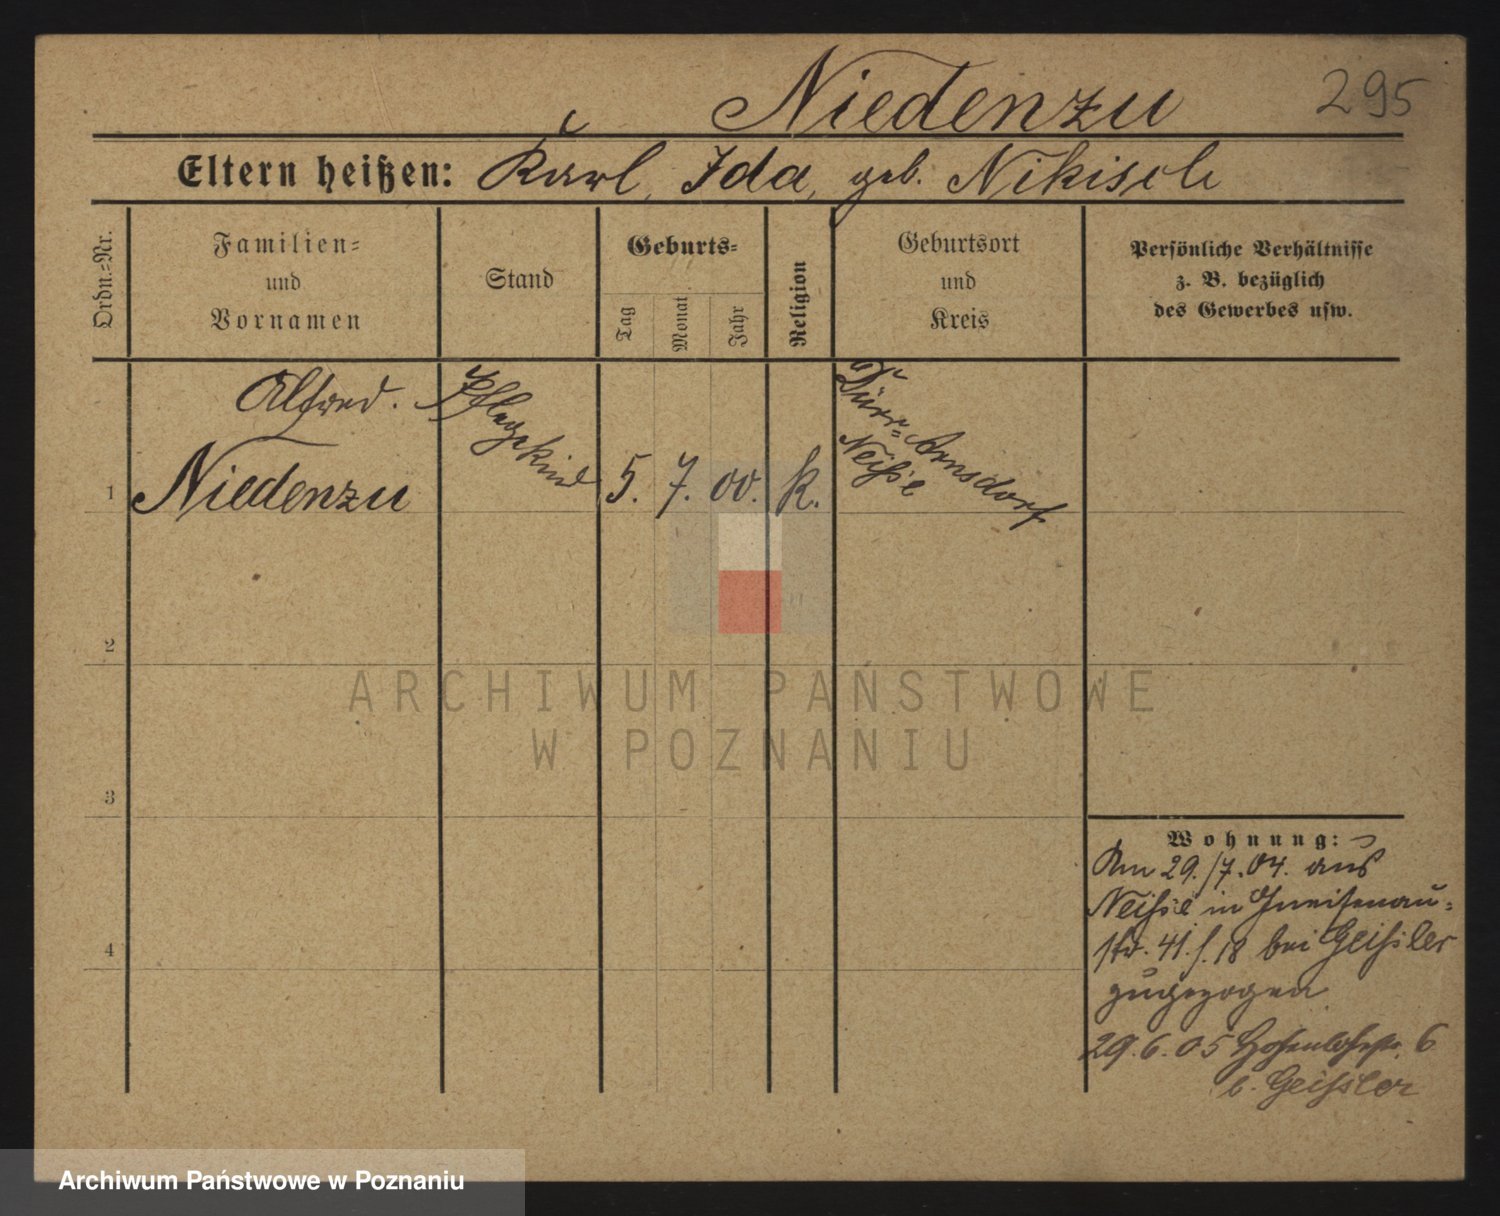 Niedenzu
295
Eltern heißen: Karl, Ida, geb. Nikisch
Ordn.=Nr.
Familien=
und
Vornamen
Stand
Geburts=
Tag
Monat
Jahr
Religion
Geburtsort
und
Kreis
Persönliche Verhältnisse
z. B. bezüglich
des Gewerbes usw.
1
Alfred.
Niedenzu
Pflegekind
5. 7. 00. k.
Dürr=Arnsdorf
Neiße
2
3
4
Wohnung:
Am 29./7. 04. aus
Neiße in Gneisenau=
str. 41. f. 18 bei Geißler
zugezogen
29. 6. 05 Hohenlohestr. 6
b. Geissler
ARCHIWUM PAŃSTWOWE
W POZNANIU
Archiwum Państwowe w Poznaniu